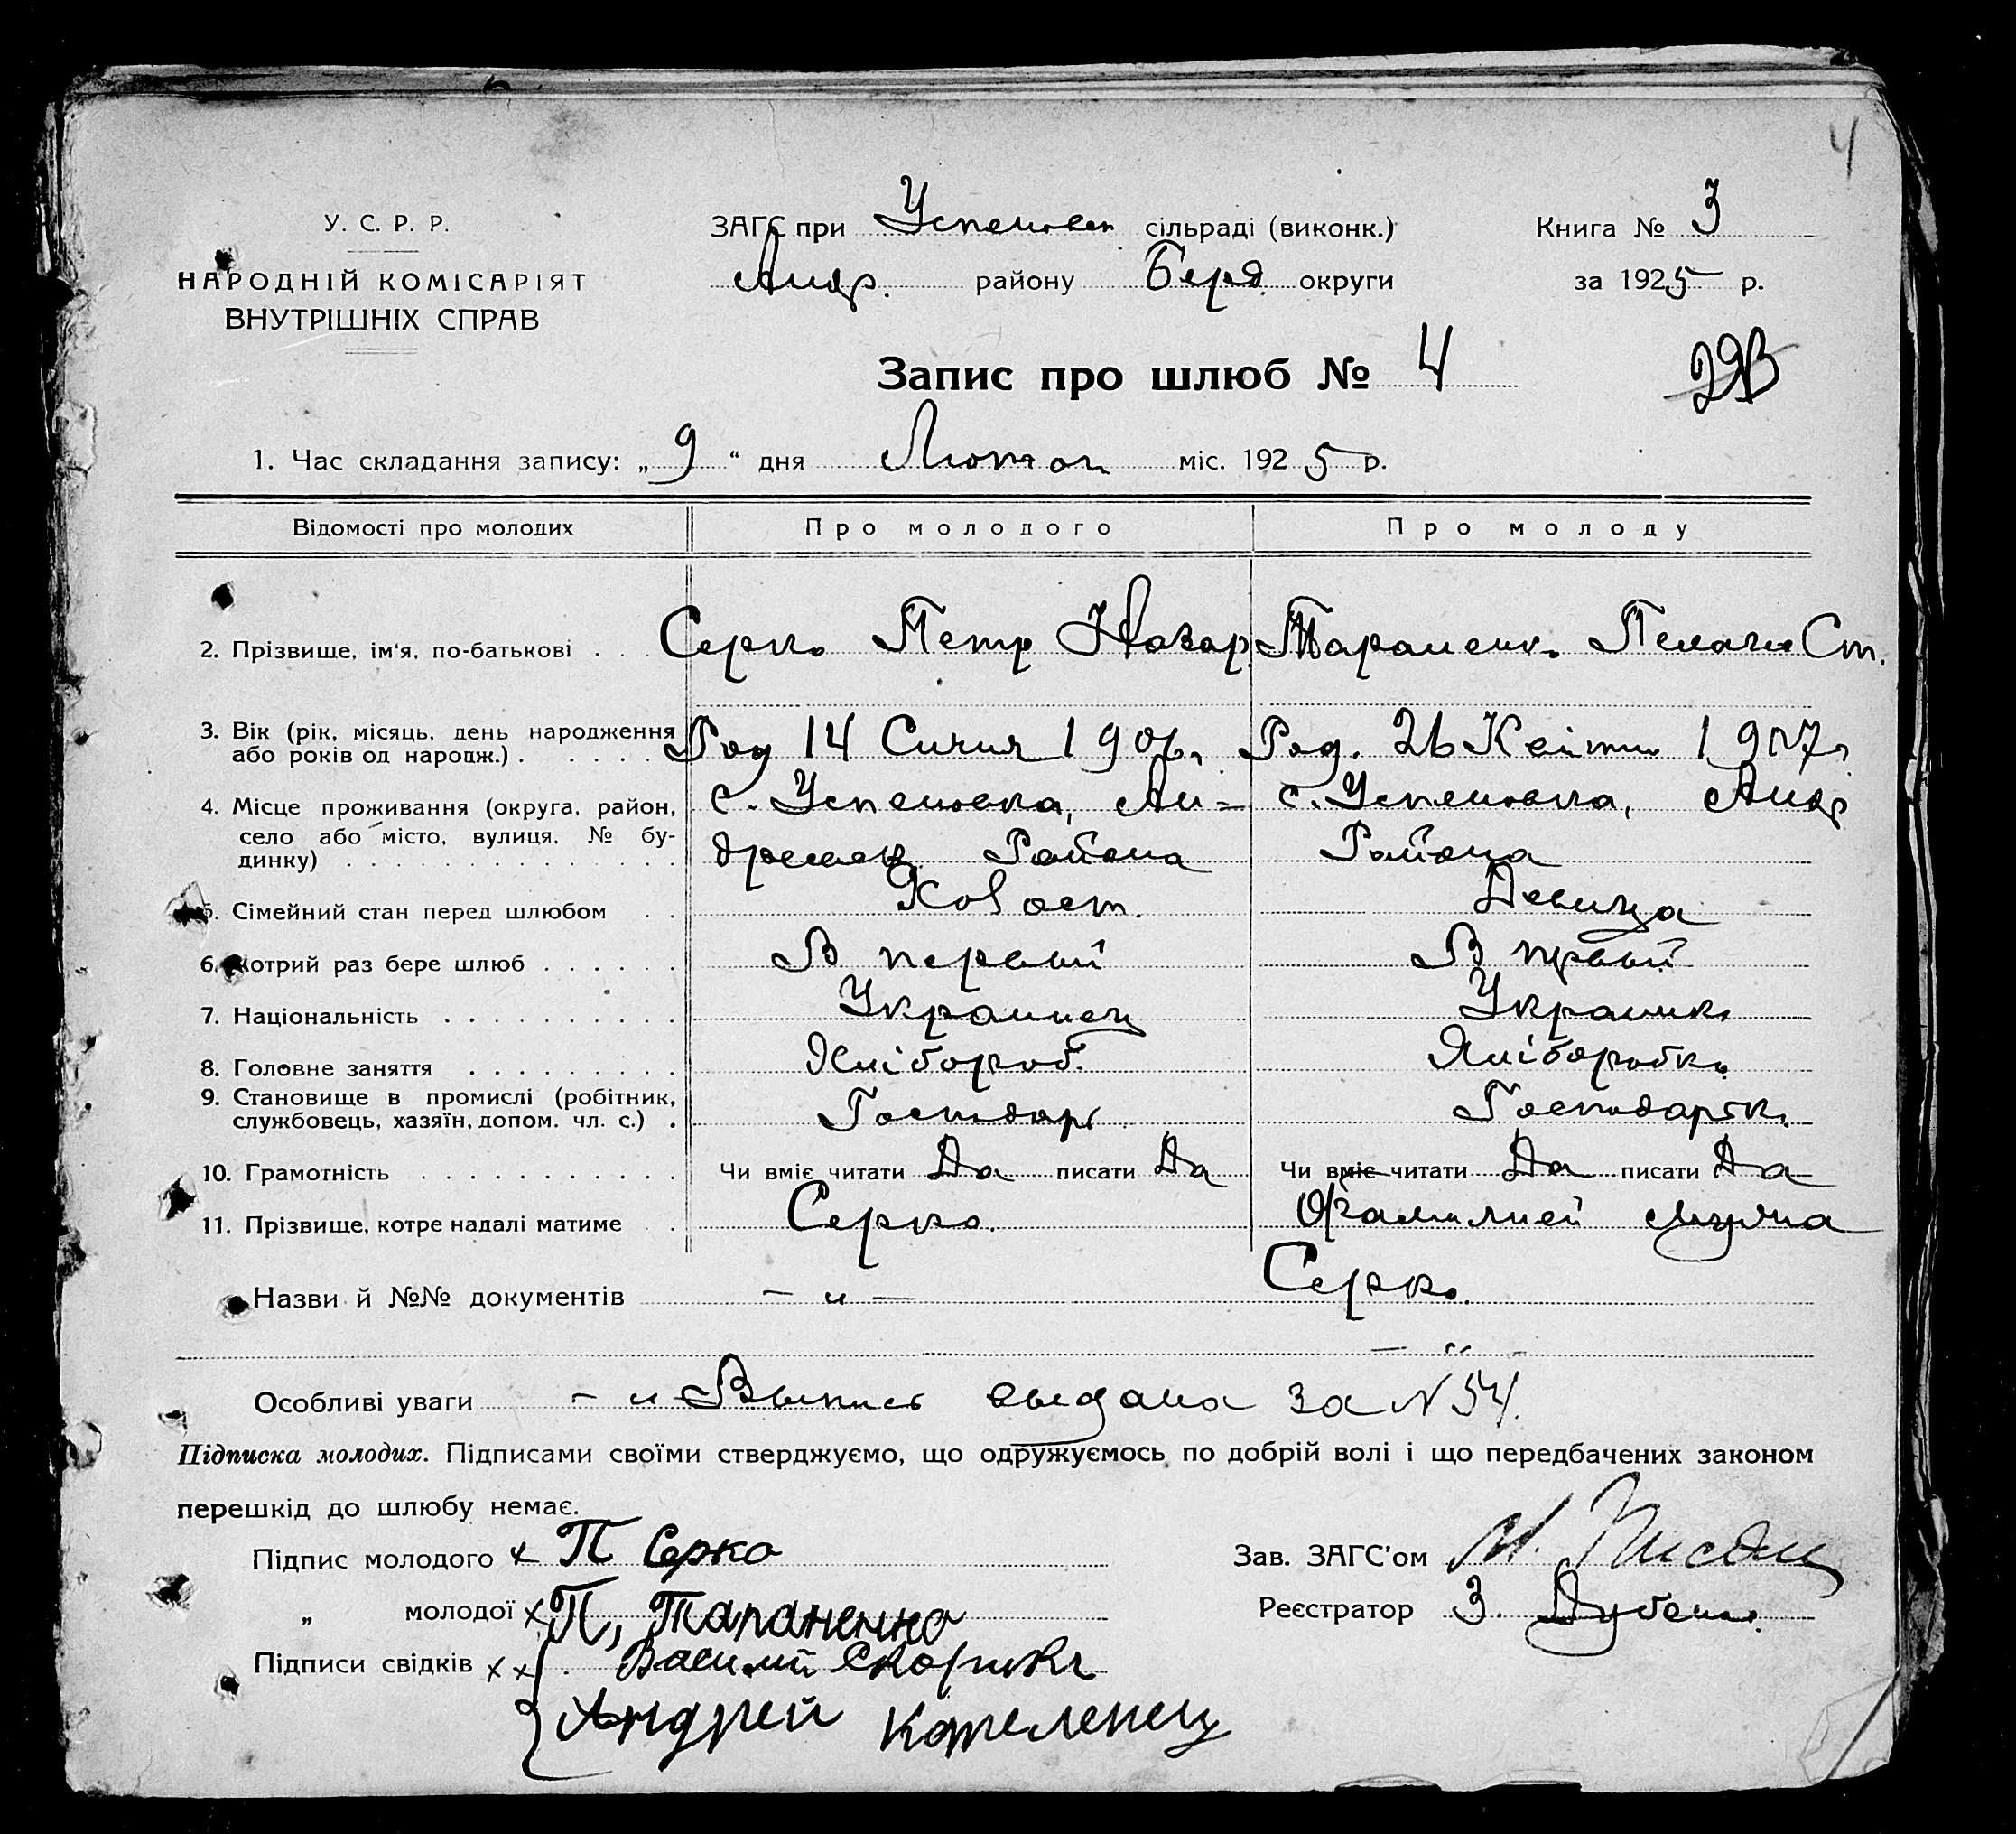 4
У. С. Р. Р.
НАРОДНІЙ КОМІСАРІЯТ
ВНУТРІШНІХ СПРАВ
ЗАГС при Успеновск сільраді (виконк.)
Андр. району Берд. округи
Книга № 3
за 1925 р.
Запис про шлюб № 4
1. Час складання запису: „ 9 “ дня Лютого міс. 1925 р.
Відомості про молодих Про молодого Про молоду
2. Прізвище, ім‘я, по-батькові . . . Серко Петр Назар. Тараненко Пелагея Ст.
3. Вік (рік, місяць, день народження або років од народж.) . . . . . . Род 14 Сичня 1906 г. Род. 26 Квітня 1907 г
4. Місце проживання (округа, район, село або місто, вулиця, № будинку) . . . с. Успеновка, Андреевск Района с. Успеновка, Андр Района
5. Сімейний стан перед шлюбом . . Холост. Девица
6. Котрий раз бере шлюб . . . . . . В первый В првый
7. Національність . . . . . . . . . . Украинец Украинка
8. Головне заняття . . . . . . . . . Хлібороб. Хліборобка
9. Становище в промислі (робітник, службовець, хазяїн, допом. чл. с.) . Господарь Господарка
10. Грамотність . . . . . . . . . . . Чи вміє читати Да писати Да Чи вміє читати Да писати Да
11. Прізвище, котре надалі матиме . . Серко. Фамилией мужа
Серко.
Назви й №№ документів — „ —
— „ —
Особливі уваги — „ Выпись выдана за N 54.
Підписка молодих. Підписами своїми стверджуємо, що одружуємось по добрій волі і що передбачених законом
перешкід до шлюбу немає.
Підпис молодого х П Серко
Зав. ЗАГС‘ом М.
„ молодої х П, Тараненко
Реєстратор З.
Підписи свідків х х Василий
Андрей